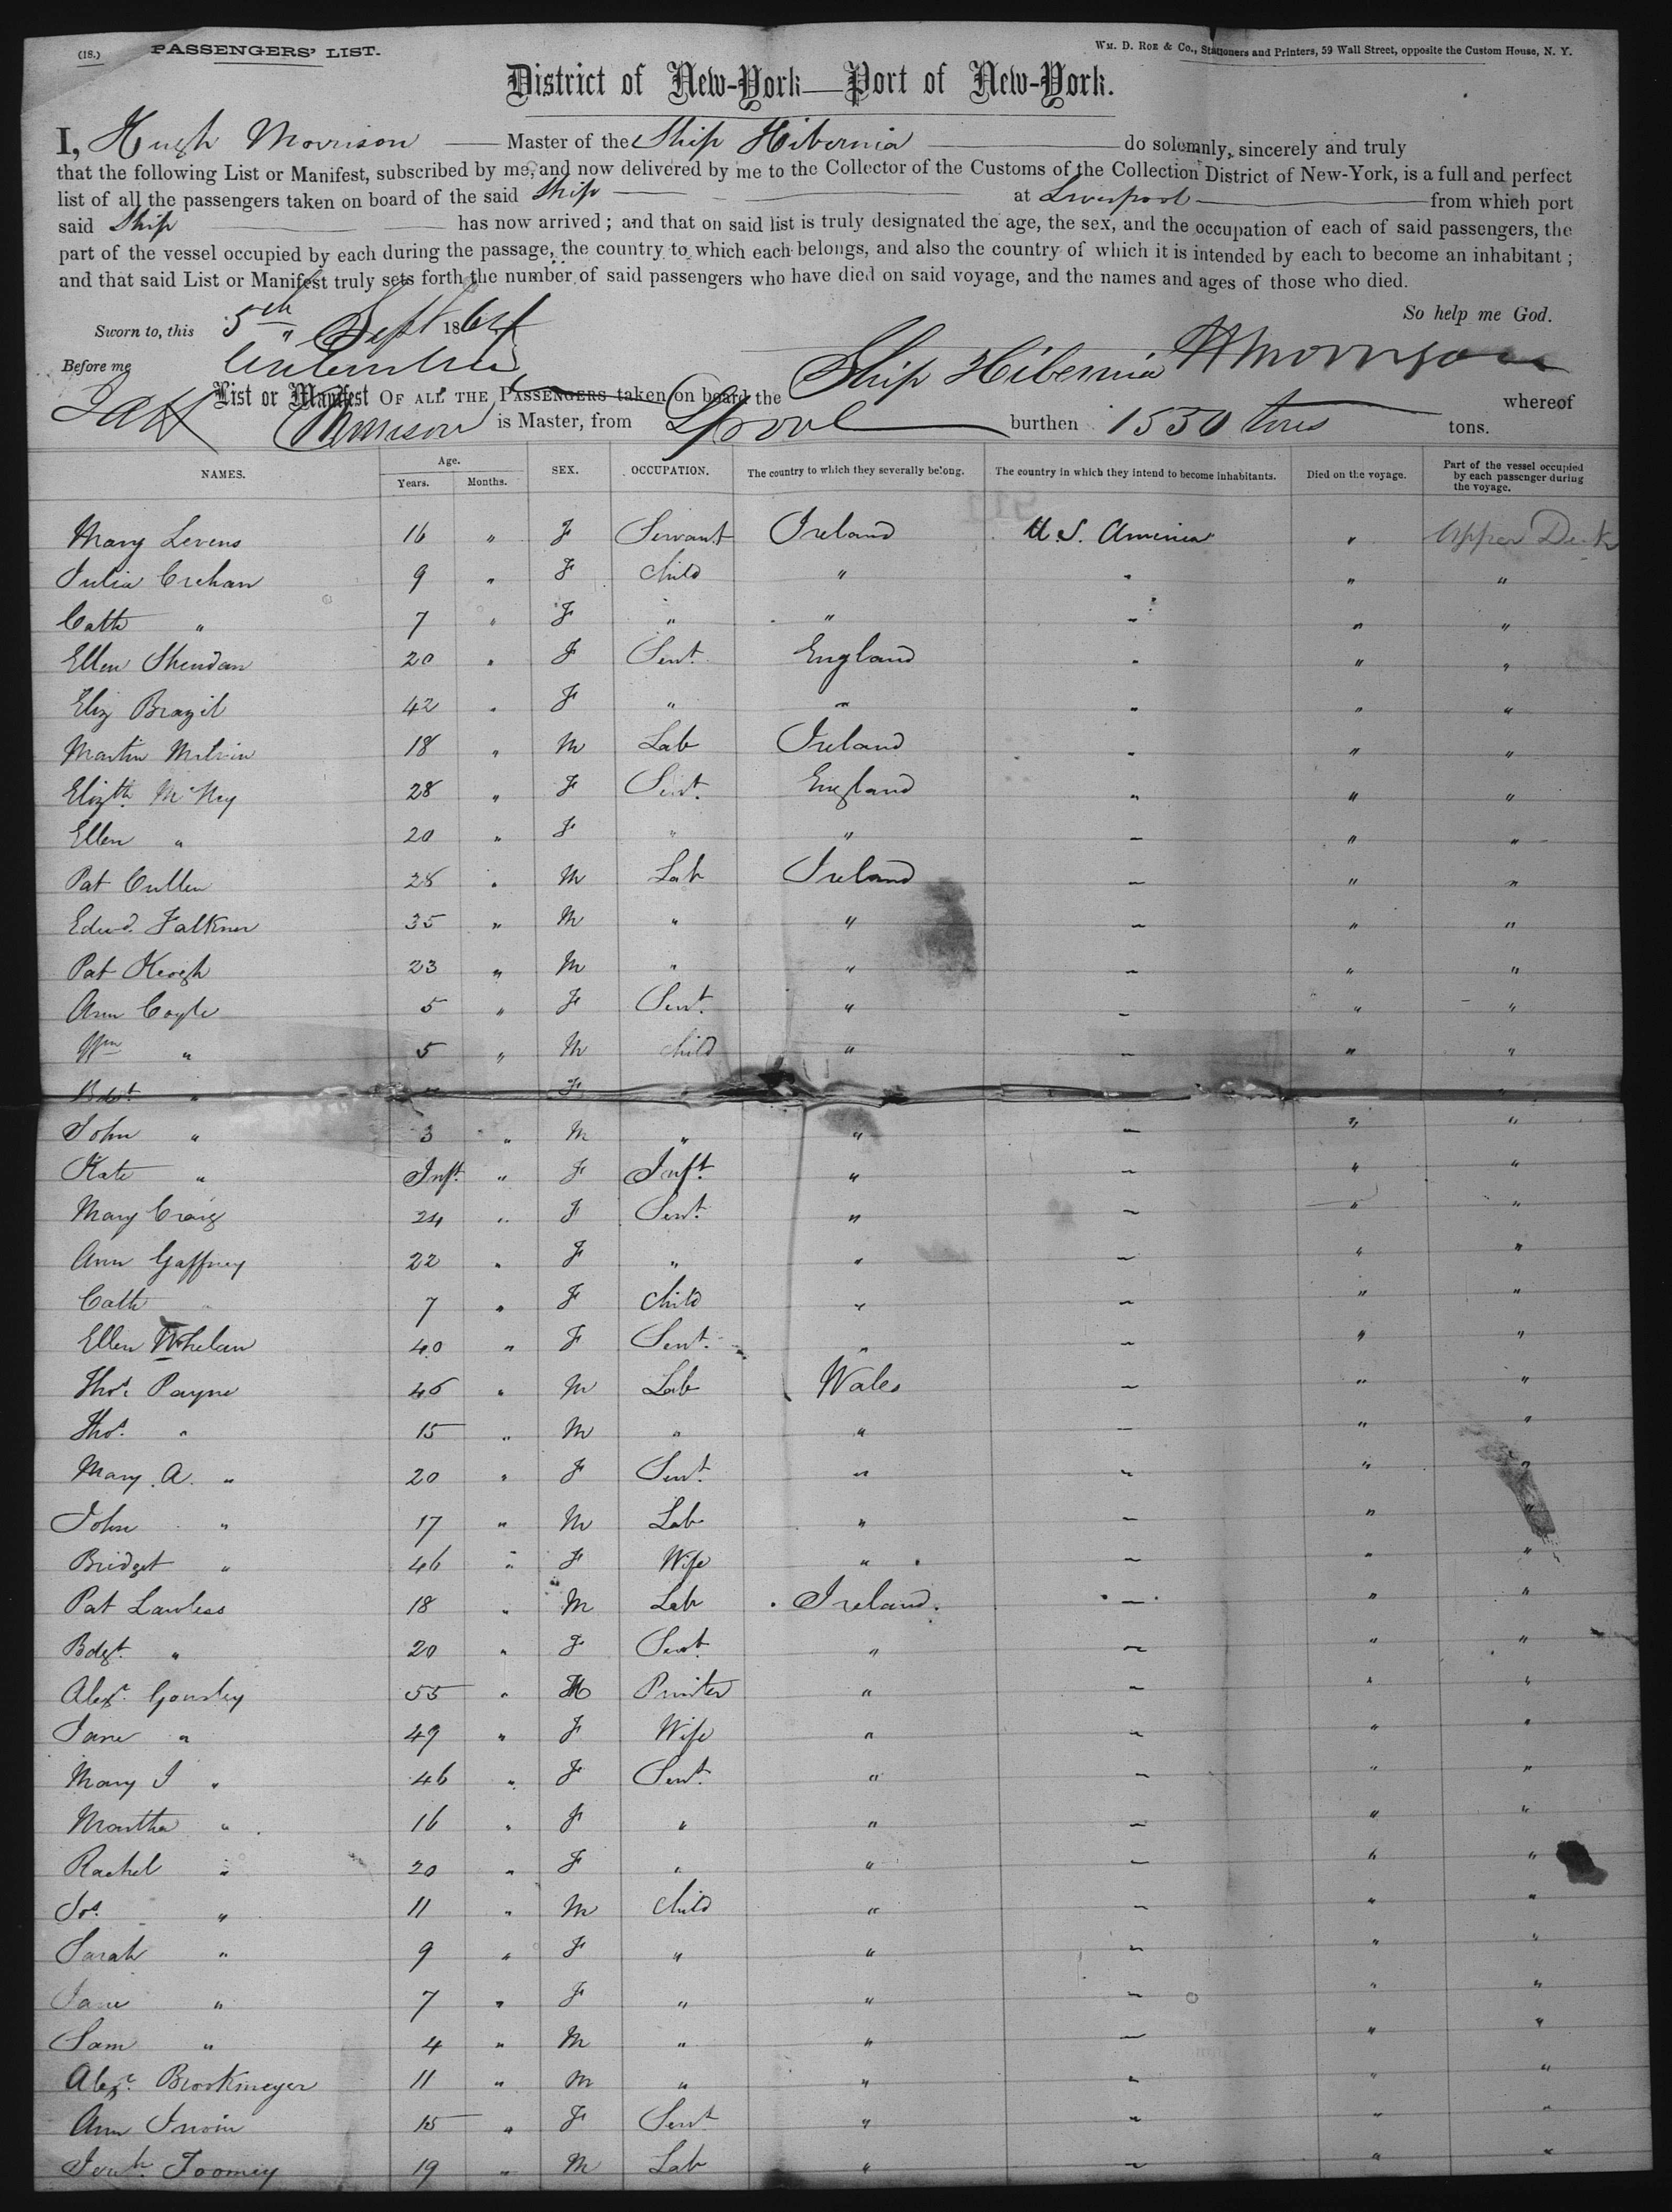 (18.) PASSENGERS' LIST. WM. D. ROE & Co., Stationers and Printers, 59 Wall Street, opposite the Custom House, N. Y.
District of New-York—Port of New-York.
I, Hugh Morrison Master of the Ship Hibernia do solemnly, sincerely and truly
that the following List or Manifest, subscribed by me, and now delivered by me to the Collector of the Customs of the Collection District of New-York, is a full and perfect
list of all the passengers taken on board of the said Ship at Liverpool from which port
said Ship has now arrived; and that on said list is truly designated the age, the sex, and the occupation of each of said passengers, the
part of the vessel occupied by each during the passage, the country to which each belongs, and also the country of which it is intended by each to become an inhabitant;
and that said List or Manifest truly sets forth the number of said passengers who have died on said voyage, and the names and ages of those who died.
So help me God.
Sworn to, this 5th " Sept 1864
Before me
H Morrison
List or Manifest OF ALL THE PASSENGERS taken on board the Ship Hibernia whereof
Morrison is Master, from Lpool burthen 1530 tons tons.
NAMES. Age. Years. Months. SEX. OCCUPATION. The country to which they severally belong. The country in which they intend to become inhabitants. Died on the voyage. Part of the vessel occupied by each passenger during the voyage.
Mary Levens 16 " F Servant Ireland U.S. America " Upper Deck
Julia Crehan 9 " F Child " " " "
Cath " 7 " F " " " " "
Ellen Sheridan 20 " F Sert. England " " "
Eliz Brazil 42 " F " " " " "
Martin 18 " M Lab Ireland " " "
Elizth. McKey 28 " F Sert. England " " "
Ellen " 20 " F " " " " "
Pat Cullen 28 " M Lab Ireland " " "
Edwd. Falkner 35 " M " " " " "
Pat Keogh 23 " M " " " " "
Ann Coyle 5 " F Sert. " " " "
Wm " 5 " M Child " " " "
Bdgt " F "
John " 3 " M " " " " "
Kate " Inft. " F Inft. " " " "
Mary Craig 24 " F Sert. " " " "
Ann Gaffney 22 " F " " " " "
Cath " 7 " F Child " " " "
Ellen Whelan 40 " F Sert. " " " "
Thos. Payne 46 " M Lab Wales " " "
Thos. " 15 " M " " " " "
Mary A. " 20 " F Sert. " " " "
John " 17 " M Lab " " " "
Bridget " 46 " F Wife " " " "
Pat Lawless 18 " M Lab Ireland. " " "
Bdgt. " 20 " F Sert. " " " "
Alexr. Gourley 55 " M Printer " " " "
Jane " 49 " F Wife " " " "
Mary J " 46 " F Sert. " " " "
Martha " 16 " F " " " " "
Rachel " 20 " F " " " " "
Jos. " 11 " M Child " " " "
Sarah " 9 " F " " " " "
Jane " 7 " F " " " " "
Sam " 4 " M " " " " "
Alexr. Brookmeyer 11 " M " " " " "
Ann Irwin 15 " F Sert " " " "
Toomey 19 " M Lab " " " "